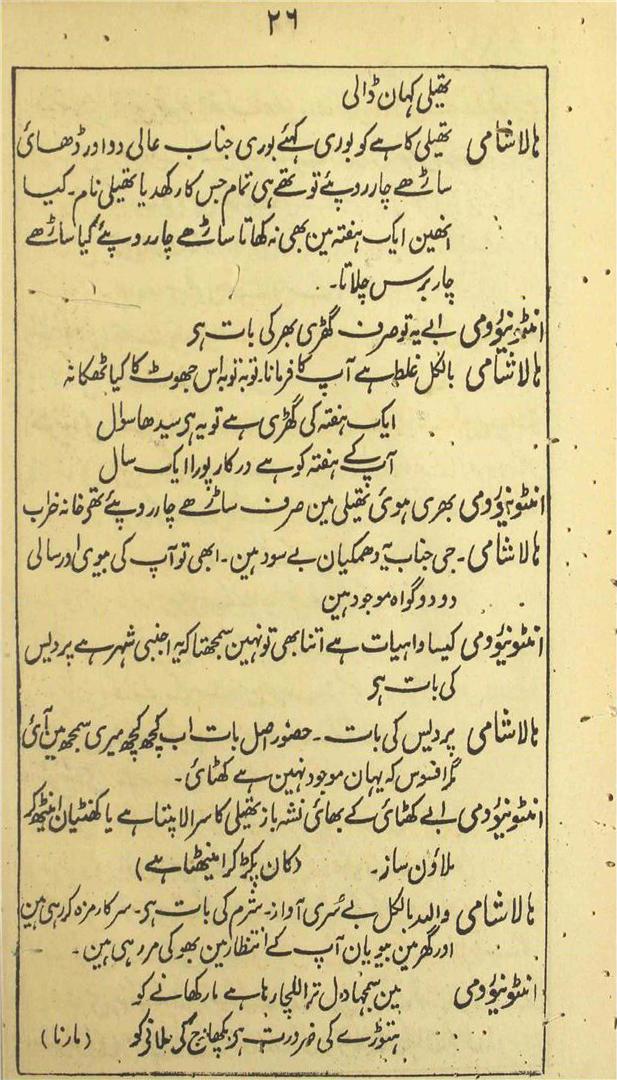 ۲۶
تھیلی کہان ڈالی
ہالاشامی تھیلی کاہے کو بوری کہئے بوری جناب عالی دو اور ڈھائی
ساڑھے چار روپئے تو تھے ہی تمام جس کا رکھدیا تھیلی نام۔ کیا
انھین ایک ہفتہ مین بھی نہ کھاتا ساڑھے چار روپئے گیا ساڑھے
چار برس چلاتا۔
انٹونیؤومی ابے یہ تو صرف گھڑی بھر کی بات ہر
ہالاشامی بالکل غلط ہے آپ کا فرمانا۔ توبہ توبہ اس جھوٹ کا کیا ٹھکانہ
ایک ہفتہ کی گھڑی ہے تو یہ ہر سیدھا سوال
آپ کے ہفتہ کو ہے درکار پورا ایک سال
انٹونیؤومی بھری ہوئی تھیلی مین صرف ساڑھے چار روپئے تھے خانہ خراب
ہالاشامی۔ جی جناب یہ دھمکیان بے سود ہین۔ ابھی تو آپ کی بیوی اور سالی
دو دو گواہ موجود ہین
انٹونیؤومی کیسا واہیات ہے اتنا بھی تو نہین سمجھتا کہ یہ اجنبی شہر ہے پردیس
کی بات ہر
ہالاشامی پردیس کی بات۔ حضور اصل بات اب کچھ کچھ میری سمجھ مین آئی
مگر افسوس کہ یہان موجود نہین ہے کھٹائی۔
انٹونیؤومی ابے کھٹائی کے بھائی نشہ باز تھیلی کا سرا لاپتا ہے یا کھنٹیان اینٹھ کر
ملاؤن ساز۔ (کان پکڑ کر اینٹھتا ہے)
ہالاشامی واللہ بالکل بے سُری آواز۔ شرم کی بات ہر۔ سرکار مزہ کر رہی ہین
اور گھر مین بیویان آپ کے انتظار مین بھوکی مر رہی ہین۔
انٹونیؤومی مین سمجھا دل ترا للچا رہا ہے مار کھانے کو
ہتوڑے کی ضرورت ہر کی (مارنا)